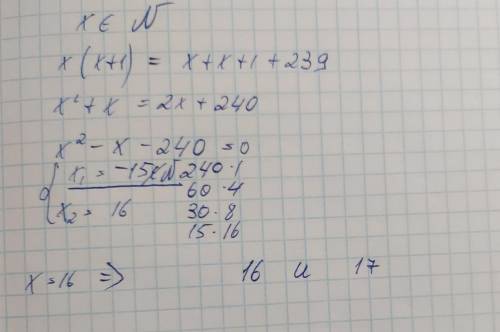 x ∈ N
x(x+1) = x+x+1+239
x² + x = 2x + 240
x² - x - 240 = 0
x₁ = -15 ∉ N 240·1
60·4
x₂ = 16 30·8
15·16
x = 16 ⇒ 16 и 17